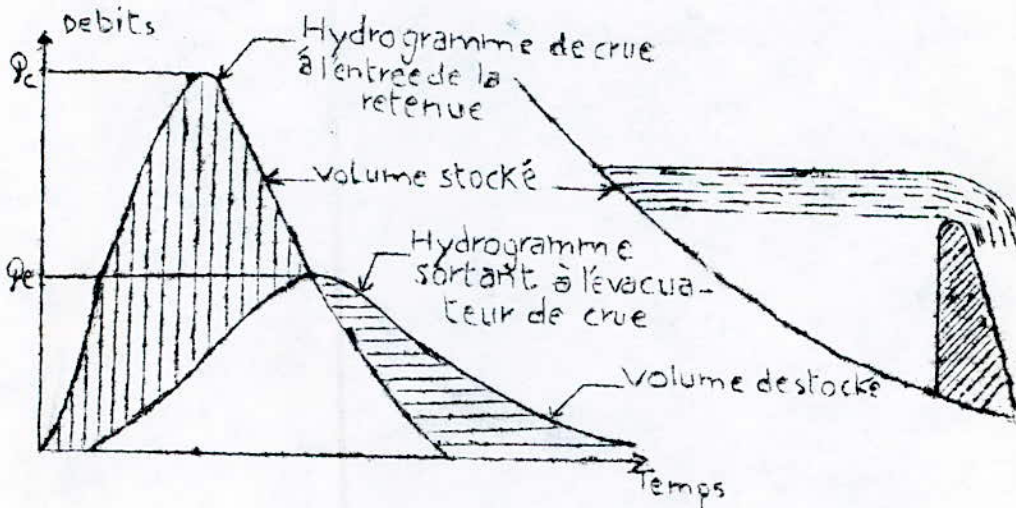 Debits
Qc
Hydrogramme de crue
à l'entrée de la
retenue
volume stocké
Qe
Hydrogramme
sortant à l'évacua-
teur de crue
Volume destocké
Temps